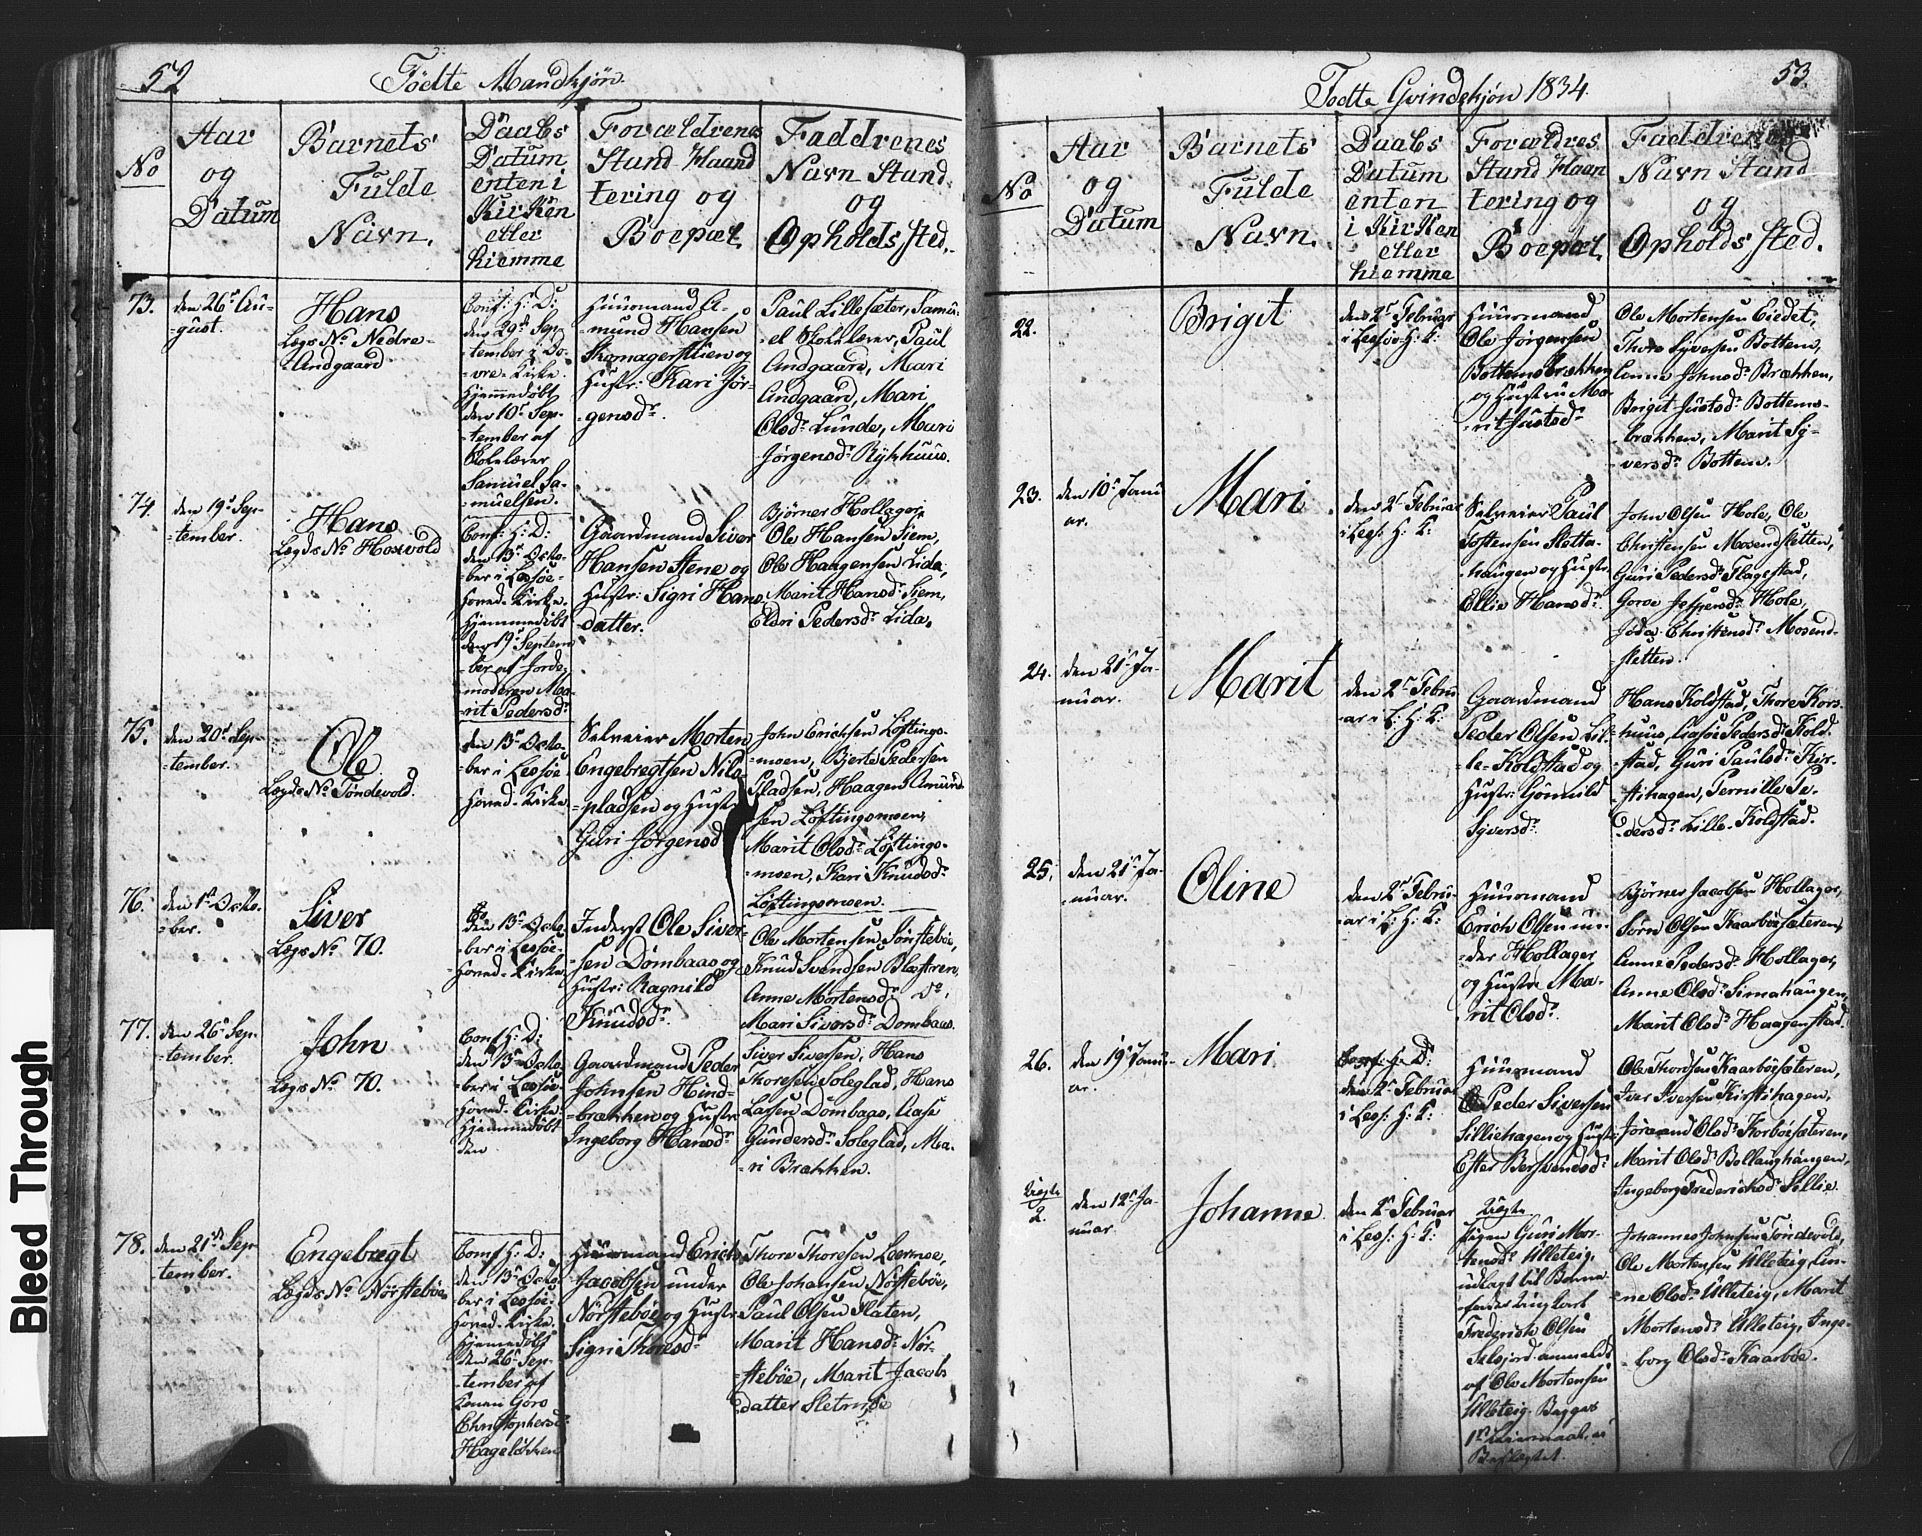 52
Födte Mandkjøn.
No
Aar
og
Datum
Barnets
Fulde
Navn.
Daabs
Datum
enten i
Kirken
eller
hiemme
Forældrenes
Stand Haand
tering og
Boepæl
Faddrenes
Navn Stand
og
Opholds sted.
73.
den 26r Au-
-gust.
Hans
Lægs No Nedre-
Andgaard
Conf: H: D:
den 29de Sep-
-tember i Do-
-vre-Kirke.
Hjemmedøbt
den 10r Sep-
-tember af
Samuel Sa-
muelsen.
Huusmand A-
-mund Hansen
Skomagerstuen og
Hustr: Kari Jør-
-gensdr.
Paul Lillesæter, Samu-
-el Skolelærer, Paul
Andgaard, Mari
Andgaard, Mari
Olsdr Lunde, Mari
Jørgensdr Rykhuus.
74.
den 19r Sep-
-tember.
Hans
Lægds No Hosvold
Conf: H: D:
den 13r Octo-
-ber i Lessøe-
Hoved-Kirke.
Hjemmedöbt
den 19r Septem-
-ber af Jorde-
moderen Ma-
-rit Pedersdr
Gaardmand Siver
Hansen Stene og
Hustr: Sigri Hans
datter.
Bjørner Hollager,
Ole Hansen Siem,
Ole Haagensen Lida,
Marit Hansdr Siem,
Eldri Pedersdr Lida,
75.
den 20r Sep-
-tember.
Ole
Lægds No Tøndevold.
den 13r Octo-
-ber i Lessøe
Hoved-Kirke
Selveier Morten
Engebregtsen Nils-
-pladsen og Hustr
Guri Jörgensd
John Erichsen Løftings-
-moen, Bjerte Pedersen
Pladsen, Haagen Amund-
sen Løftingsmoen,
Marit Olsdr Løftings-
-moen, Kari Knudsdr
Løftingsmoen.
76.
den 1r Octo-
-ber.
Siver
Lægs No 70.
den 13r Octo-
-ber i Lessøe-
Hoved-Kirke
Inderst Ole Siver-
-sen Dombaas og
Hustr: Ragnild
Knudsdr
Ole Mortensen Sønstebøe,
Knud Svendsen Blæstren,
Anne Mortensdr do,
Mari Siversdr Dombaas.
77.
den 26r Sep-
-tember.
John
Lægs No 70.
Conf: H: D:
den 13r Octo-
-ber i Lessøe-
Hoved-Kirke
Hjemmedøbt
den
Gaardmand Peder
Johnsen Hind-
-brækken og Hustr
Ingeborg Hansdr
Siver Siversen, Hans
Thoresen Soleglad, Hans
Larsen Dombaas, Aase
Gundersdr Soleglad, Ma-
-ri Brækken.
78.
den 21de Sep-
-tember.
Engebregt
Lægds No Nørstebøe
Conf H: D:
den 13r Octo-
-ber i Lessøe-
Hoved-Kirke.
Hjemmedøbt
den 26r Sep-
-tember af
Konen Goro
Christophersdr
Hageløkken
Huusmand Erich
Jacobsen under
Nörstebøe og Hustr
Sigri Thoresdr
Thore Thoresen Leermoe,
Ole Johansen Nørstebøe,
Paul Olsen Slaten,
Marit Hansdr Nör-
-stebøe, Marit Jacobs
datter Sletmoe
53.
Födte Qvindekjön 1834.
No
Aar
og
Datum
Barnets
Fulde
Navn.
Daabs
Datum
enten
i Kirken
eller
hiemme
Forældres
Stand Haan
tering og
Boepæl
Faddrenes
Navn Stand
og
Opholds sted.
22.
Brigit
den 2r Februar
i Lessøe H: K:
Huusmand
Ole Jørgensen
Bottemsbrækken
og Hustru Ma-
-rit Justsdr
Ole Mortensen Eiedet,
Thore Syversen Bottem,
Anne Johnsdr Brækken,
Brigit Justsdr Bottems-
-brækken, Marit Sy-
-versdr Bottem.
23.
den 10r Janu
ar.
Mari
den 2r Februar
i Less: H: K:
Selveier Paul
Tostensen Sletta-
-haugen og Hustr
Ellie Hansdr
John Olsen Hole, Ole
Christensen Mosendsletten,
Guri Pedersdr Flagestad,
Goroe Jespersdr Hole,
Jøda Christensdr Mosend-
sletten.
24.
den 21r Ja-
-nuar.
Marit
den 2r Febru-
-ar i L: H: K:
Gaardmand
Peder Olsen Lil-
-le-Koldstad og
Hustr: Gömild
Syversdr
Hans Koldstad, Thore Kors-
-huus, Aasøe Pedersdr Kold-
-stad, Guri Paulsdr Kir-
-stihagen, Pernille Pe-
-dersdr Lille-Koldstad.
25,
den 21r Ja-
-nuar.
Oline
den 2r Febru-
-ar i L: H: K:
Huusmand
Erich Olsen un-
-der Hollager
og Hustru Ma-
-rit Olsdr
Bjørner Jacobsen Hollager,
Sørn Olsen Kaarbøesæteren,
Anne Pedersdr Hollager,
Anne Olsdr Simahaugen,
Marit Olsdr Haagenstad.
26.
den 19r Janu-
ar.
Mari
Conf: H: D:
den 2r Februar
i Less: H: K:
Huusmand
Peder Siversen
Silliehagen og Hustr
Ester Bersvendsdr
Ole Thordsen Kaarbøesæteren,
Iver Iversen Kirstihagen,
Jøraand Olsdr Korbøesæteren,
Marit Olsdr Bollanghaugen,
Ingeborg Frederichsdr Sillie.
Uægte
2.
den 12r Ja-
nuar.
Johanne
den 2r Februar
i Less: H: K:
Uægte
Pigen Guri Mor-
-tensdr Ulleteig,
udlagt til Barne-
-fader Ungkarl
Frederich Olsen
Selsjord anmeldt
af Ole Mortensen
Ulleteig. Begges
1ste Leiermaal, ei
Beslægtet.
Johannes Johnsen Tøndevold,
Ole Mortensen Ulleteig, Lin-
-ne Olsdr Ulleteig, Marit
Mortensdr Ulleteig, Inge-
-borg Olsdr Kaarbøe.
Bleed Through